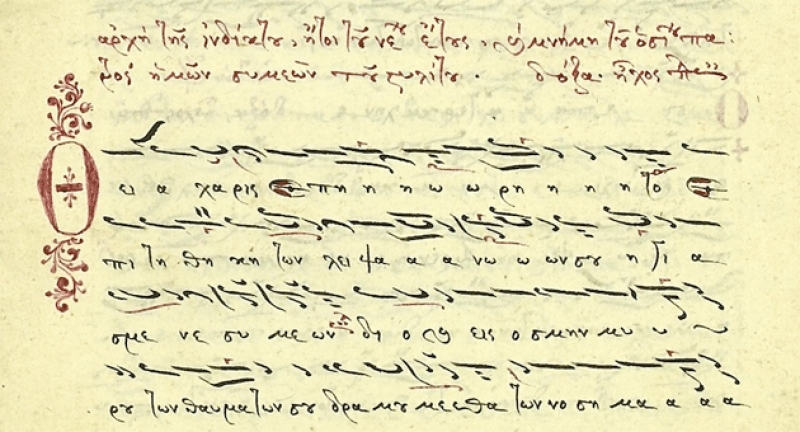 ἀρχὴ τῆς ἰνδίκτου, ἤτοι τοῦ νέου ἔτους, μνήμη τοῦ ὁσίου πα:
τρὸς ἡμῶν συμεὼν τοῦ στυλίτου. δόξα. ἦχος
Θ ει α χαρις ε πη η η ω ω ρη η η η το ε
πι τη θη κη των λει ψα α α νω ω ων σου η γι α
σμε νε συ με ων δι ο εις ο σμην μυ υ
ρου των θαυμα των σου δρα μου με ε θα των νο ση μα α α α